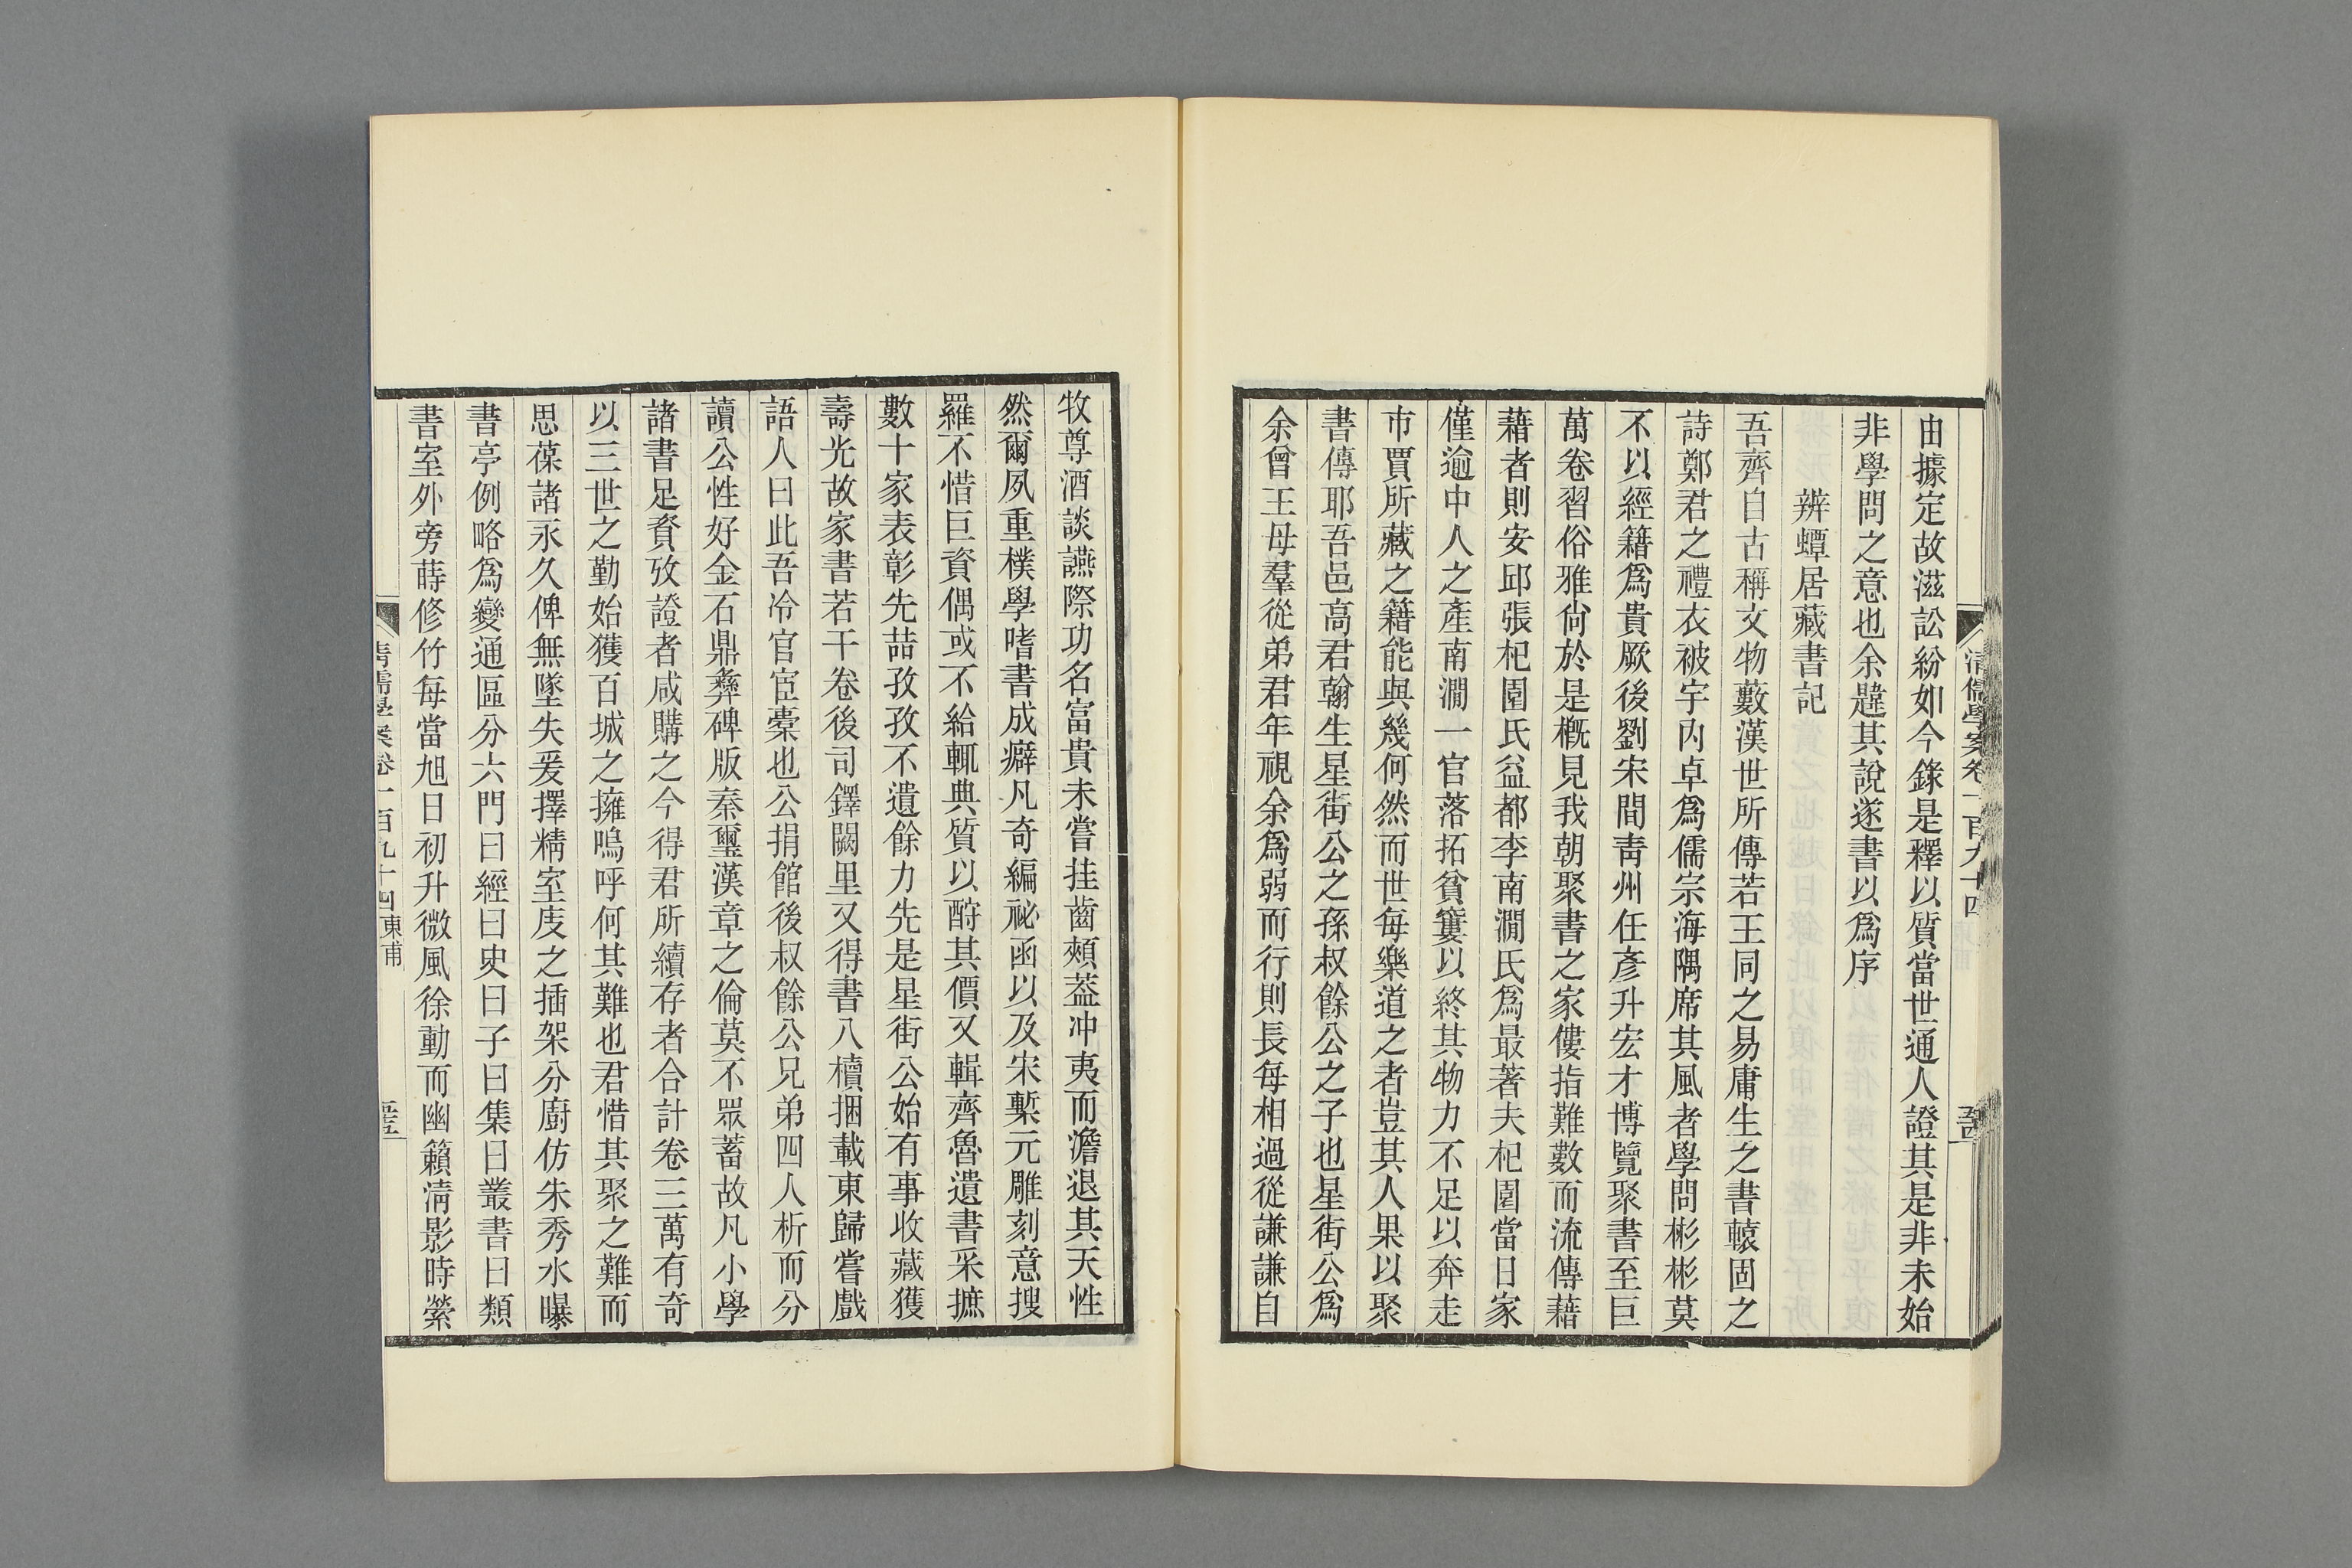 由據定故滋訟紛如今錄是釋以質當世通人證其是非未始
非學問之意也余韙其說遂書以爲序
辨蟫居藏書記
吾齊自古稱文物藪漢世所傳若王同之易庸生之書轅固之
詩鄭君之禮衣被宇內卓爲儒宗海隅席其風者學問彬彬莫
不以經籍爲貴厥後劉宋間靑州任彥升宏才博覽聚書至巨
萬卷習俗雅尙於是概見我朝聚書之家僂指難數而流傳藉
藉者則安邱張杞園氏益都李南澗氏爲最著夫杞園當日家
僅逾中人之產南澗一官落拓貧窶以終其物力不足以奔走
市賈所藏之籍能與幾何然而世每樂道之者豈其人果以聚
書傳耶吾邑高君翰生星街公之孫叔餘公之子也星街公爲
余曾王母羣從弟君年視余爲弱而行則長每相過從謙謙自
牧尊酒談讌際功名富貴未嘗挂齒頰葢冲夷而澹退其天性
然爾夙重樸學嗜書成癖凡奇編祕函以及宋槧元雕刻意搜
羅不惜巨資偶或不給輒典質以酧其價又輯齊魯遺書采摭
數十家表彰先喆孜孜不遺餘力先是星街公始有事收藏獲
壽光故家書若干卷後司鐸闕里又得書八櫝捆載東歸嘗戲
語人曰此吾冷官宦橐也公捐館後叔餘公兄弟四人析而分
讀公性好金石鼎彝碑版秦璽漢章之倫莫不眾蓄故凡小學
諸書足資攷證者咸購之今得君所續存者合計卷三萬有奇
以三世之勤始獲百城之擁嗚呼何其難也君惜其聚之難而
思葆諸永久俾無墜失爰擇精室庋之插架分廚仿朱秀水曝
書亭例略爲變通區分六門曰經曰史曰子曰集曰叢書曰類
書室外旁蒔修竹每當旭日初升微風徐動而幽籟淸影時縈
清儒學案卷一百九十四
清儒學案卷一百九十四 東甫